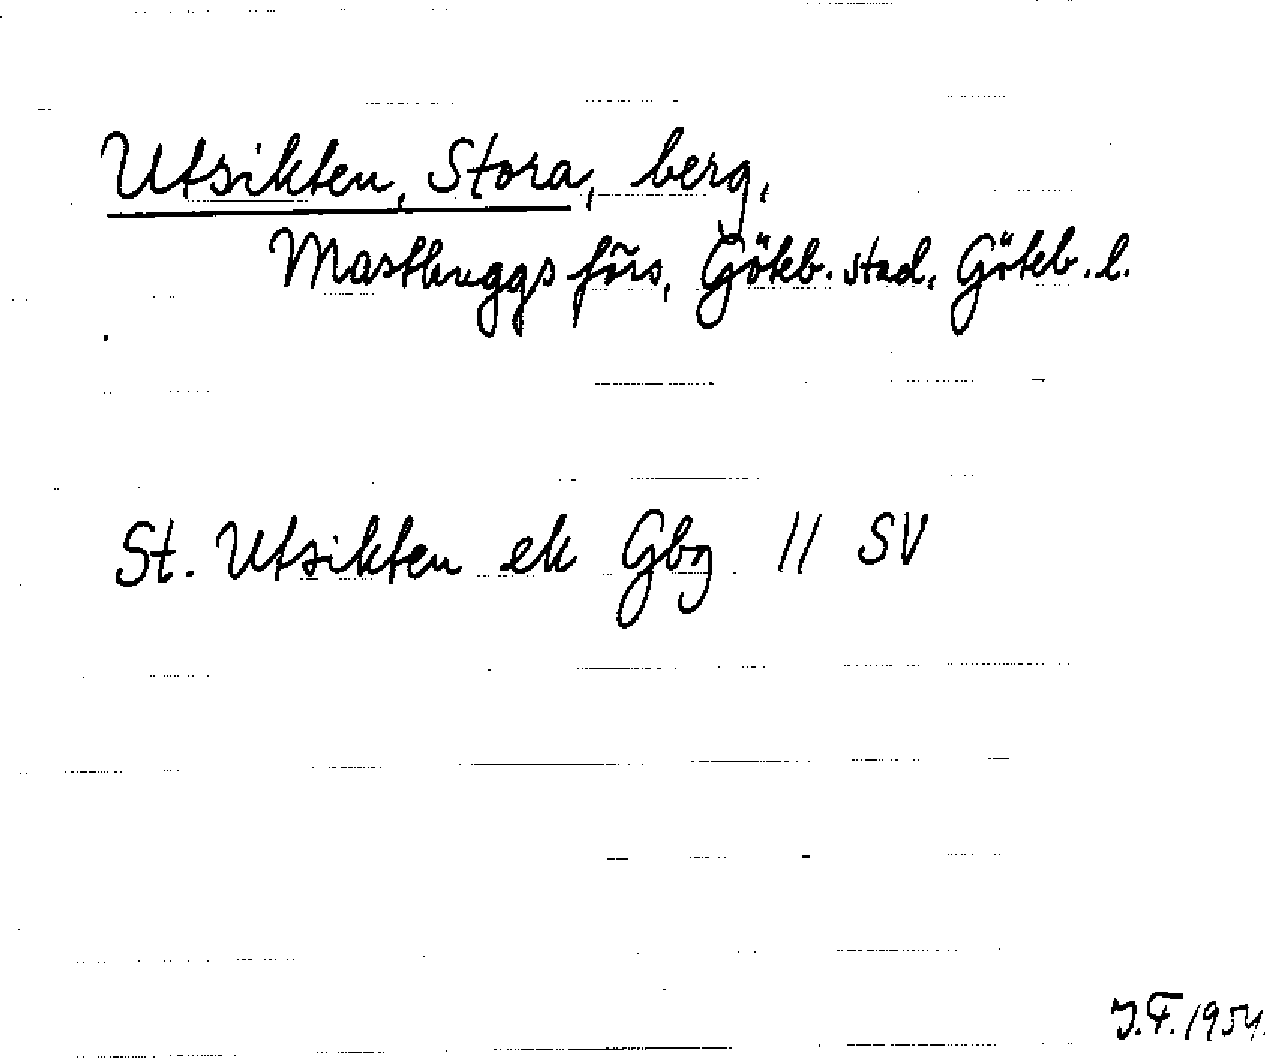 Utsikten, Stora, berg,
Masthuggs förs, Göteb. stad, Göteb. l.
St. Utsikten ek Gbg // SV
J.F. 1954.